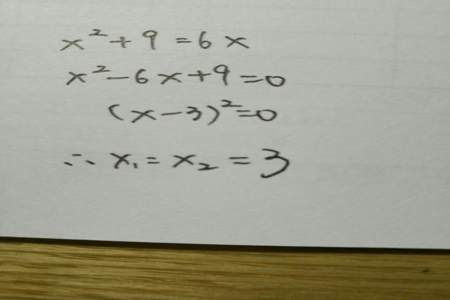 x²+9=6x
x²-6x+9=0
(x-3)²=0
∴ x₁=x₂=3